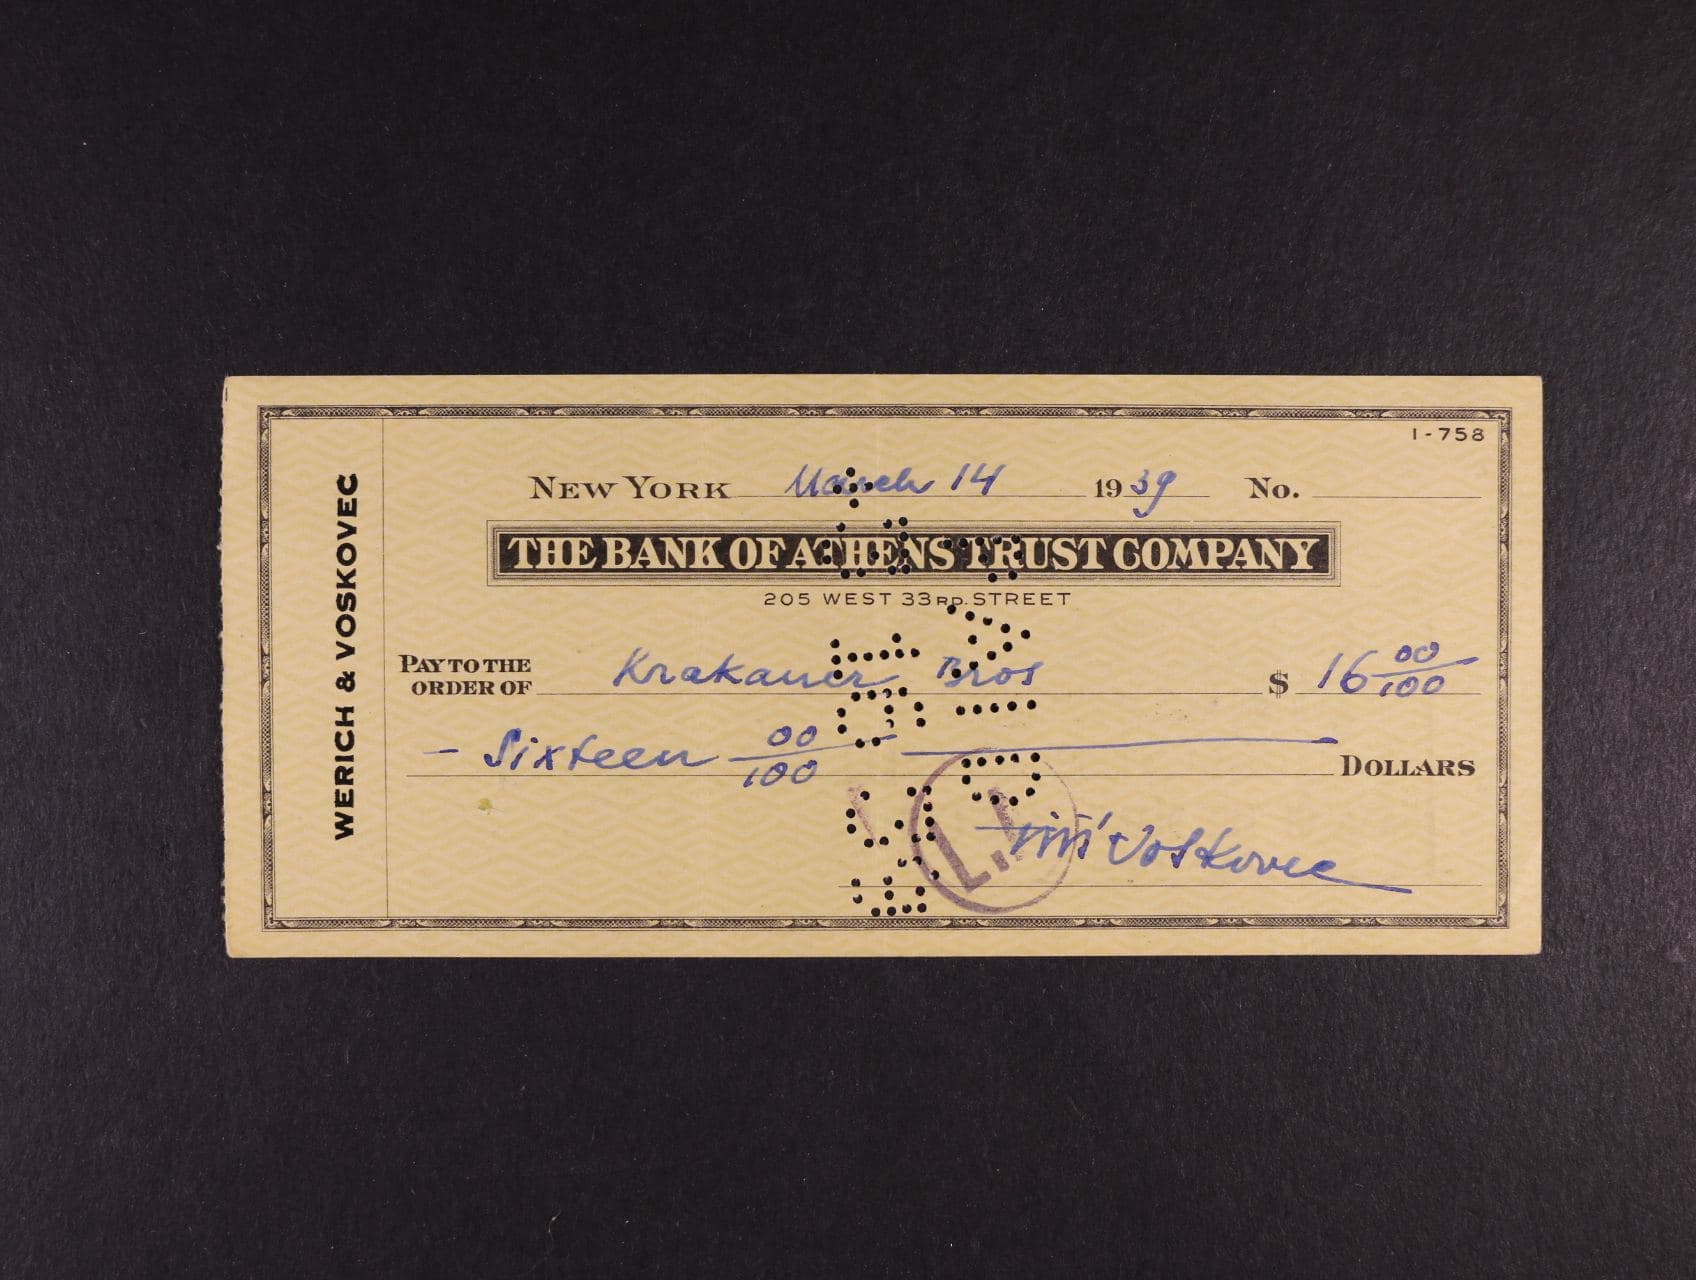 1-758
NEW YORK March 14 1939 No.
THE BANK OF ATHENS TRUST COMPANY
205 WEST 33RD. STREET
PAY TO THE ORDER OF Krakauer Bros $ 16 00/100
- Sixteen 00/100 DOLLARS
Jiří Voskovec
WERICH & VOSKOVEC